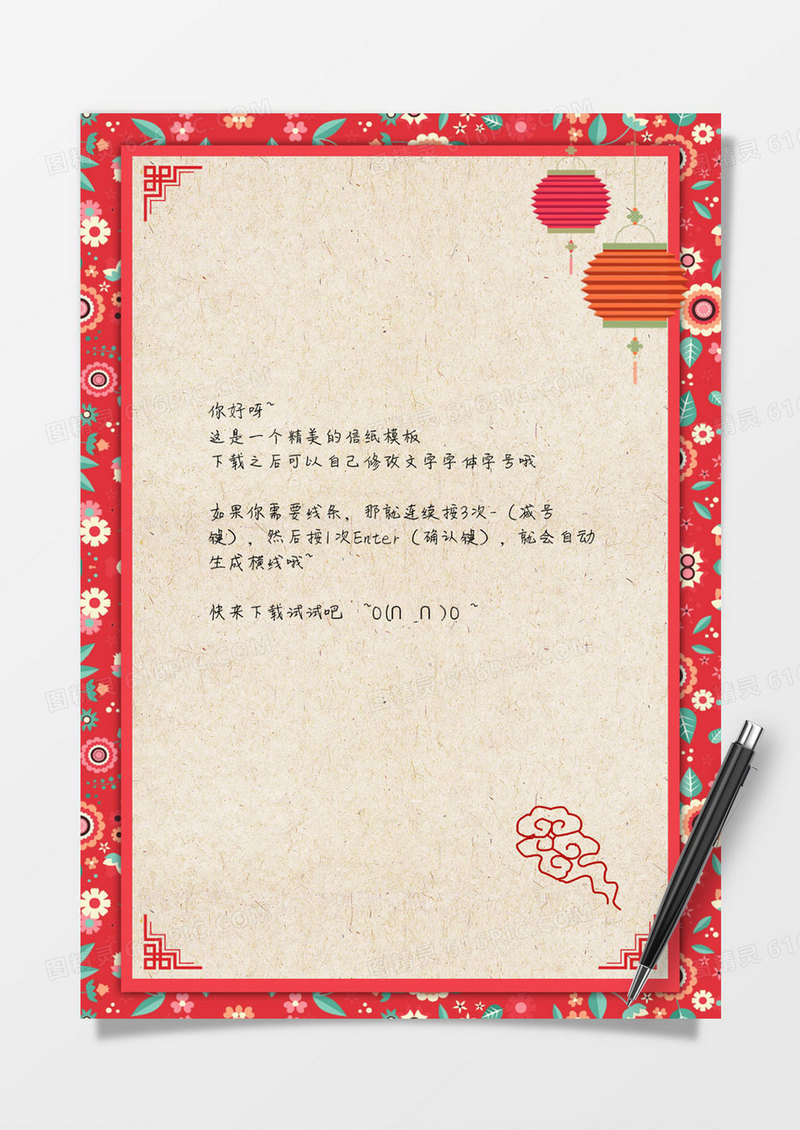 你好呀~
这是一个精美的信纸模板
下载之后可以自己修改文字字体字号哦
如果你需要线条，那就连续按3次-（减号
键），然后按1次Enter（确认键），就会自动
生成横线哦~
快来下载试试吧 ~O(∩_∩)O ~